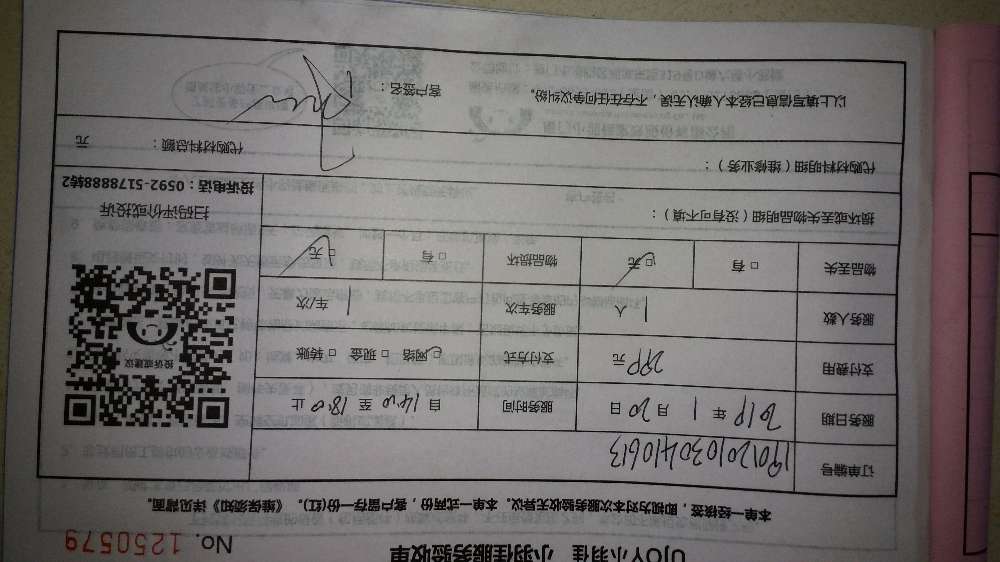 UJOY小羽佳 小羽佳服务验收单
No. 1250579
本单一经核签，即视为对本次服务验收无异议。本单一式两份，客户留存一份(红)。《维保须知》详见背面。
订单编号 1901201030410613
服务日期 2019 年 1 月 20 日 服务时间 自 14:00 至 18:00 止
支付费用 元 支付方式 网络 现金 转账
服务人数 1 人 服务车次 1 车/次
物品丢失 有 无 物品损坏 有 无
损坏或丢失物品明细（没有可不填）：
投诉或建议
扫码评价或投诉
投诉电话：0592-5178888转2
代购材料明细（维修业务）：
代购材料总额： 元
以上填写信息已经本人确认无误，不存在任何争议纠纷。
客户签名：